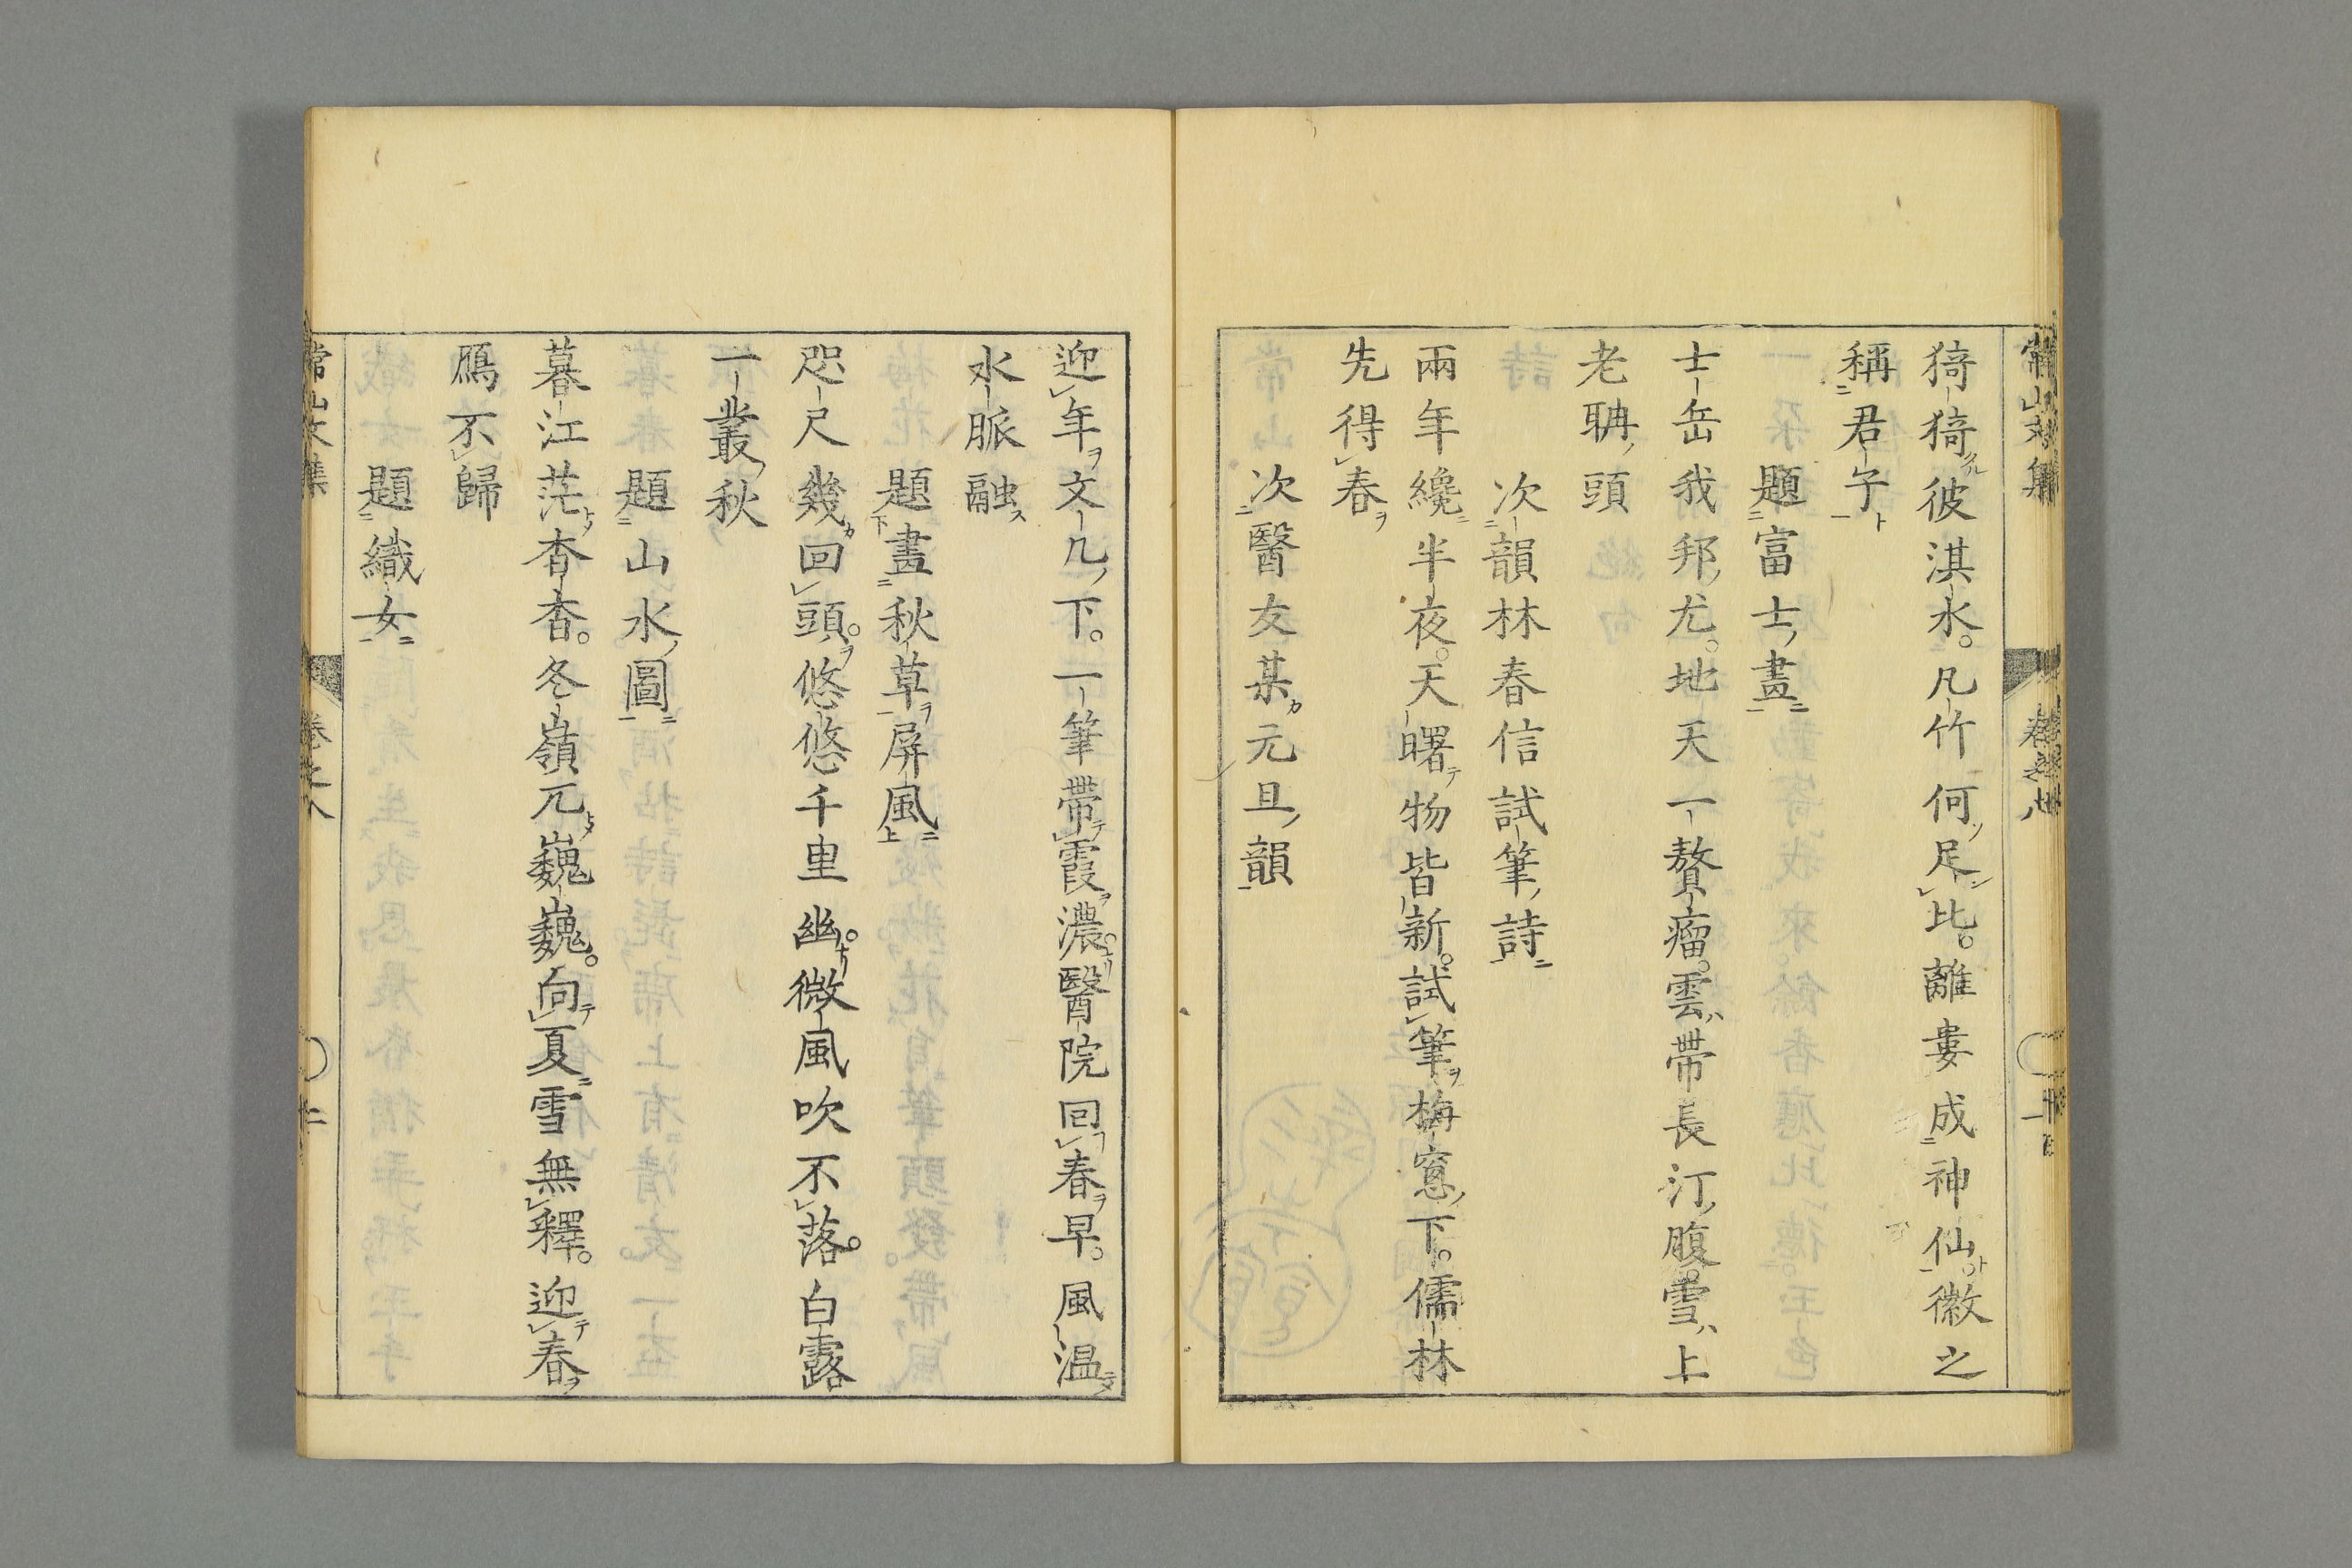 猗猗彼淇水凡竹何足比離婁成神仙徽之
稱君子
題富士畫
士岳我邦尤地天一贅瘤雲帶長汀腹雪上
老聃頭
次韻林春信試筆詩
兩年纔半夜天曙物皆新試筆梅窻下儒林
先得春
次醫友某元旦韻
迎年文几下一筆帶霞濃醫院回春早風温
水脈融
題畫秋草屏風
咫尺幾回頭悠悠千里幽微風吹不落白露
一叢秋
題山水圖
暮江茫杳杳冬嶺兀巍巍向夏雪無釋迎春
鴈不歸
題織女
常山文集
卷之八